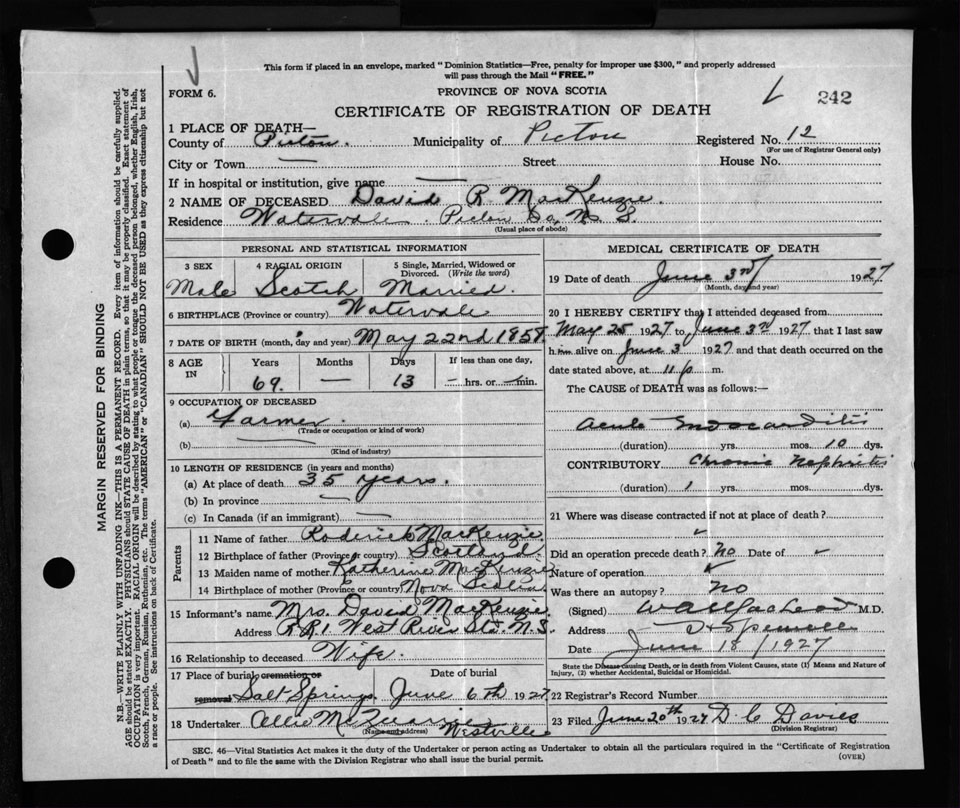 This form if placed in an envelope, marked "Dominion Statistics—Free, penalty for improper use $300," and properly addressed
will pass through the Mail "FREE."
FORM 6.
PROVINCE OF NOVA SCOTIA
242
CERTIFICATE OF REGISTRATION OF DEATH
1 PLACE OF DEATH—
County of Pictou. Municipality of Pictou Registered No. 12
(For use of Registrar General only)
City or Town — Street House No.
If in hospital or institution, give name —
2 NAME OF DECEASED David R. MacKenzie.
Residence Watervale. Pictou Co, N. S.
(Usual place of abode)
PERSONAL AND STATISTICAL INFORMATION
3 SEX 4 RACIAL ORIGIN 5 Single, Married, Widowed or
Divorced. (Write the word)
Male Scotch Married.
6 BIRTHPLACE (Province or country) Watervale
7 DATE OF BIRTH (month, day and year) May 22nd 1858.
8 AGE IN Years Months Days If less than one day,
69. — 13 — hrs. or — min.
9 OCCUPATION OF DECEASED
(a) Farmer.
(Trade or occupation or kind of work)
(b) —
(Kind of industry)
10 LENGTH OF RESIDENCE (in years and months)
(a) At place of death 35 years.
(b) In province —
(c) In Canada (if an immigrant) —
Parents
11 Name of father Roderick MacKenzie.
12 Birthplace of father (Province or country) Scotland.
13 Maiden name of mother Katherine MacKenzie
14 Birthplace of mother (Province or country) Nova Scotia
15 Informant's name Mrs. David MacKenzie.
Address R R 1 West River Sta. N.S.
16 Relationship to deceased Wife.
17 Place of burial cremation or Date of burial
removal Salt Springs. June 6th 1927
18 Undertaker Westville
(Name and address)
MEDICAL CERTIFICATE OF DEATH
19 Date of death June 3rd 1927
(Month, day and year)
20 I HEREBY CERTIFY that I attended deceased from
May 25 1927 to June 3rd 1927 that I last saw
him alive on June 3 1927 and that death occurred on
date stated above, at 11 p m.
The CAUSE of DEATH was as follows:—
Acute
(duration) yrs. mos. 10 dys.
CONTRIBUTORY Chronic Nephritis
(duration) 1 yrs. mos. dys.
21 Where was disease contracted if not at place of death?
Did an operation precede death? No Date of
Nature of operation
Was there an autopsy? No
(Signed) M.D.
Address
Date June 18/1927
State the Disease Causing Death, or in death from Violent Causes, state (1) Means and Nature of
Injury, (2) whether Accidental, Suicidal or Homicidal.
22 Registrar's Record Number
23 Filed June 20th 1927 D. C. Davies
(Division Registrar)
SEC. 46—Vital Statistics Act makes it the duty of the Undertaker or person acting as Undertaker to obtain all the particulars required in the "Certificate of Registration
of Death" and to file the same with the Division Registrar who shall issue the burial permit.
(OVER)
MARGIN RESERVED FOR BINDING
N.B.—WRITE PLAINLY, WITH UNFADING INK—THIS IS A PERMANENT RECORD. Every item of information should be carefully supplied.
AGE should be stated EXACTLY. PHYSICIANS should STATE CAUSE OF DEATH in plain terms, so that it may be properly classified. Exact statement of
OCCUPATION is very important. RACIAL ORIGIN will be described by stating to what people or tongue the deceased person belonged, whether English, Irish,
Scotch, French, German, Russian, Ruthenian, etc. The terms "AMERICAN" or "CANADIAN" SHOULD NOT BE USED as they express citizenship but not
a race or people. See instructions on back of Certificate.